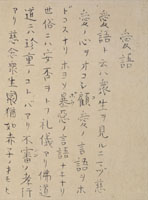 愛語
愛語ト云ハ衆生ヲ見ルニマヅ慈
愛ノ心ヲオコシ顧愛ノ言語ヲホ
ドコスナリホヨソ暴惡ノ言語ナキナリ
世俗ニハ安否ヲトフ礼儀アリ佛道
ニハ珍重ノコトバアリ不審ノ孝行
アリ慈念衆生猶如赤子ノオモヒ